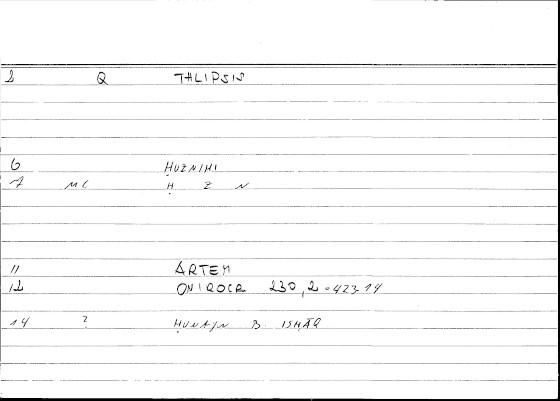 2 Q THLIPSIS
6 ḤUZNIHI
7 MC Ḥ Z N
11 ARTEM
12 ONIROCR 230,2 = 423.14
14 ? ḤUNAYN B ISḤĀQ